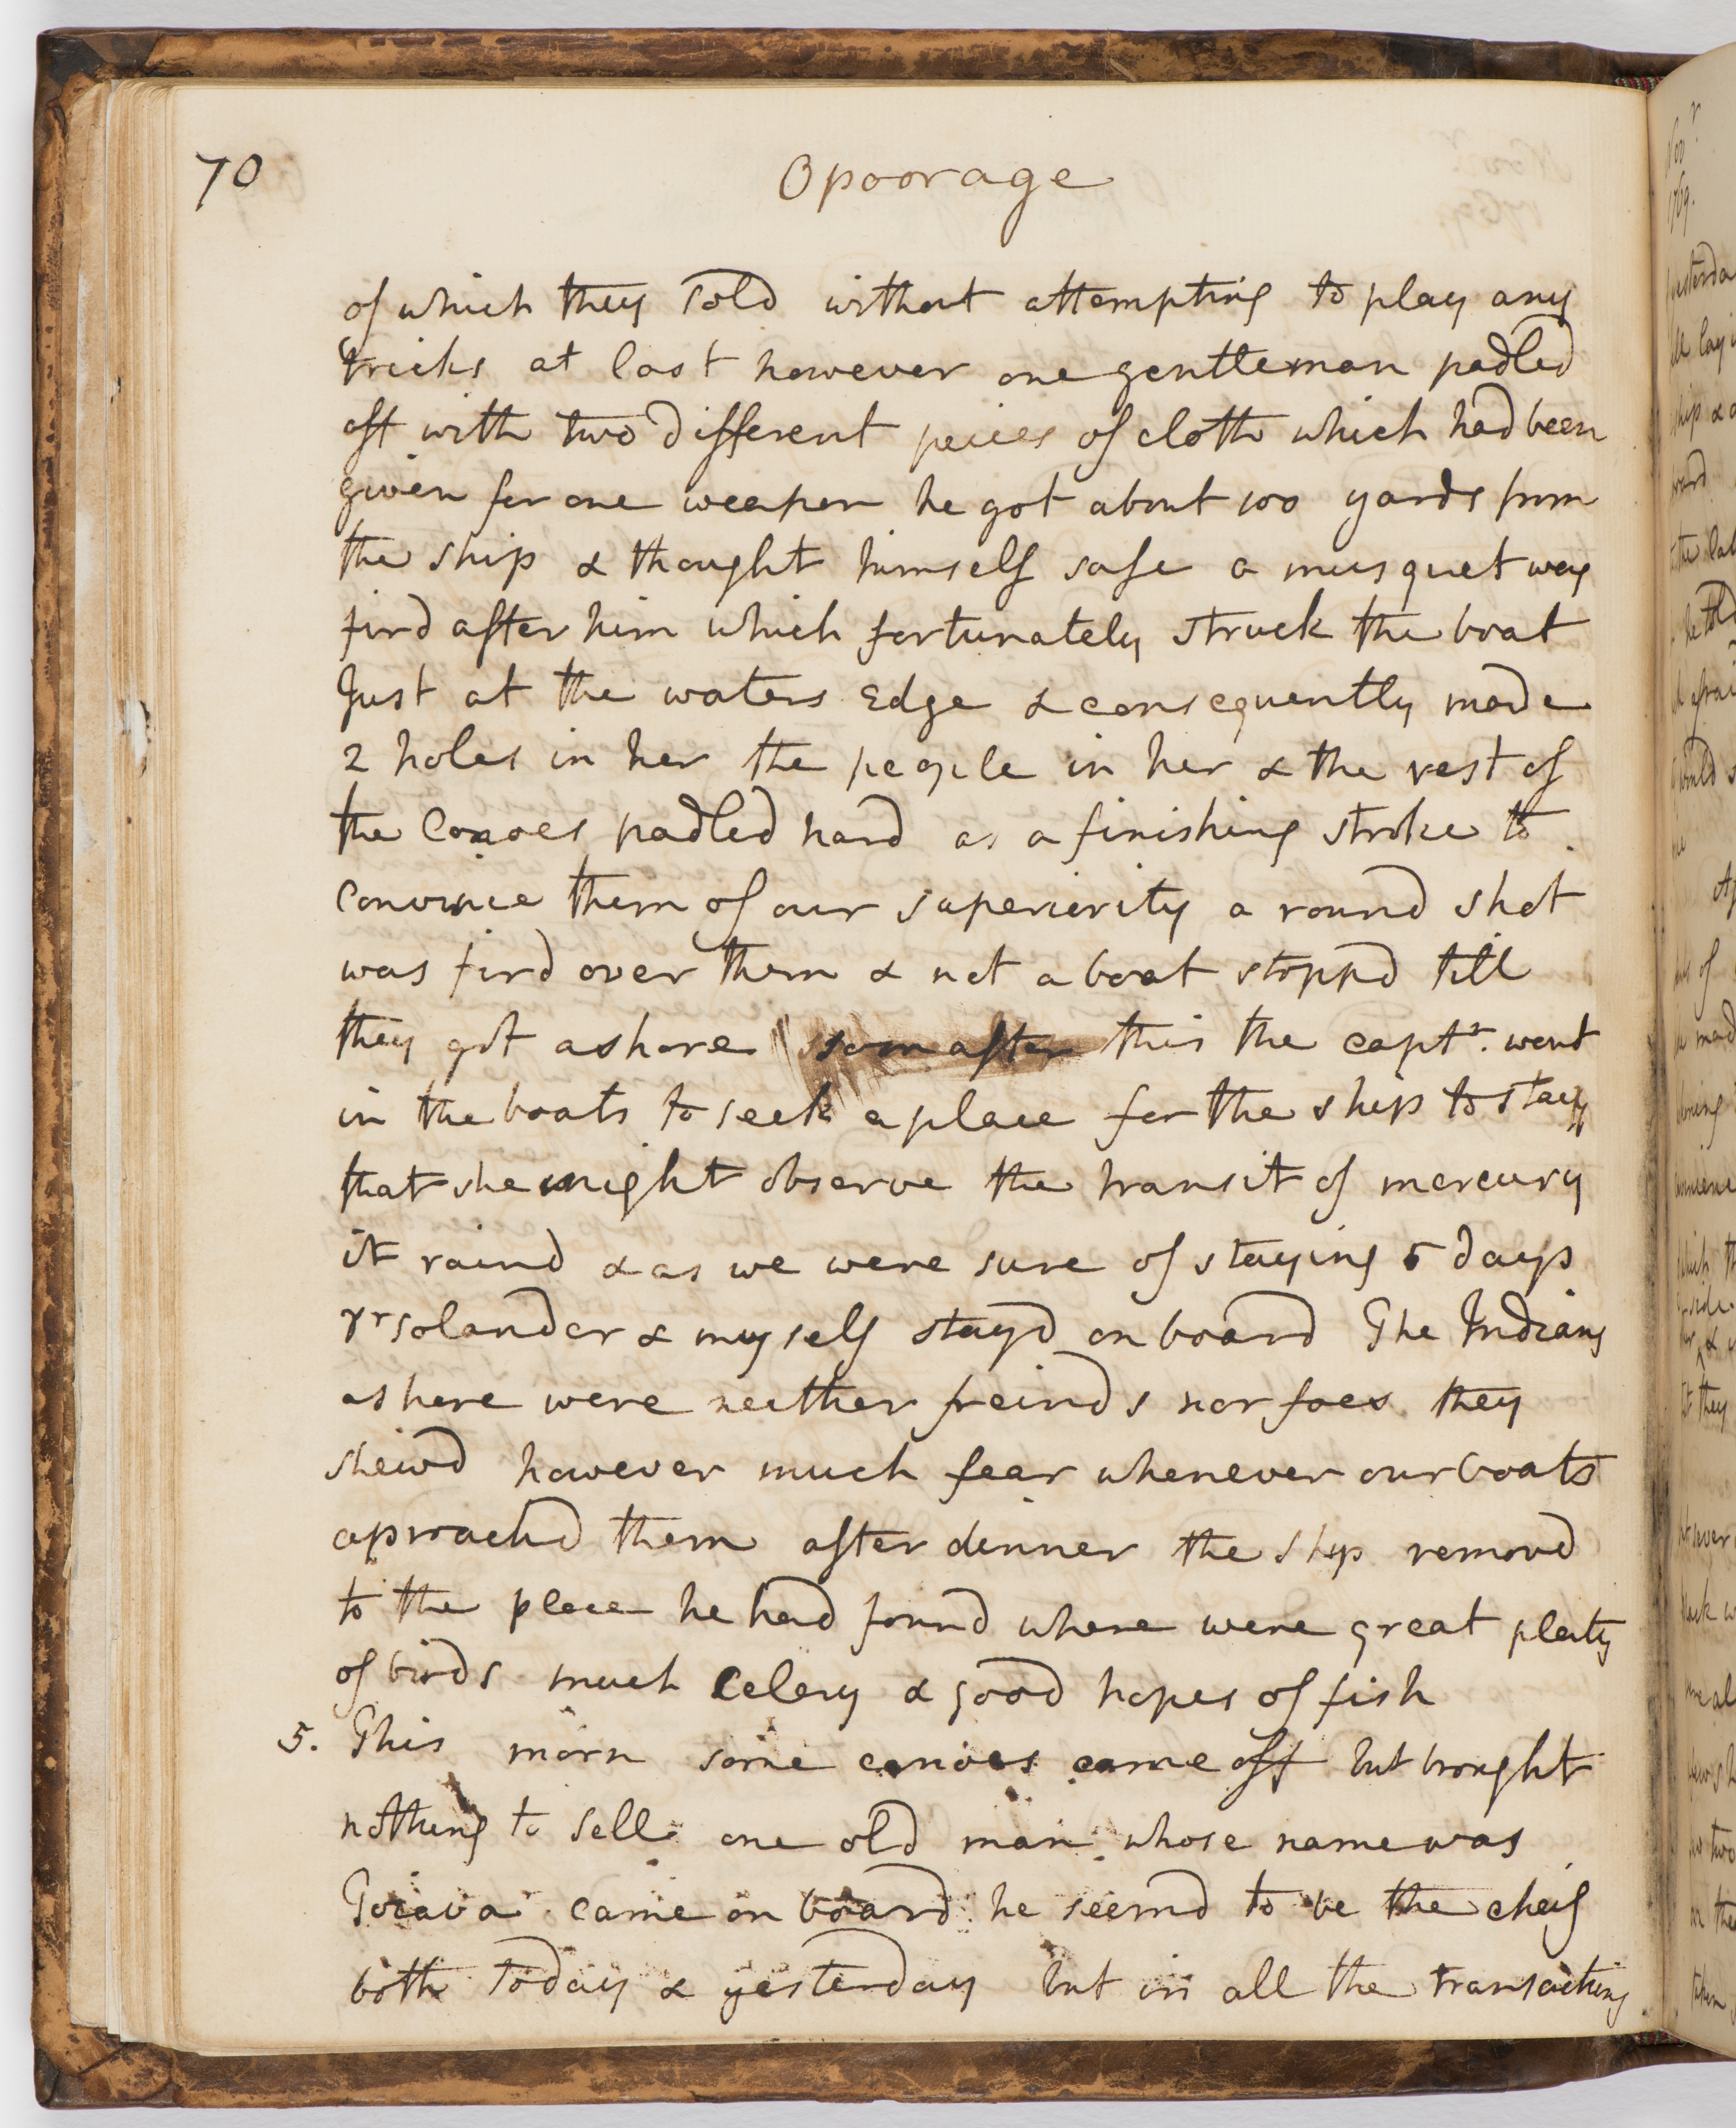 70
Opoorage
of which they sold without attempting to play any
tricks at last however one gentleman padled
off with two different peices of cloth which had been
given for one weapon he got about 100 yards from
the ship & thought himself safe a musquet was
fird after him which fortunately struck the boat
Just at the waters Edge & consequently made
2 holes in her the people in her & the rest of
the Canoes padled hard as a finishing stroke to
convince them of our superiority a round shot
was fird over them & not a boat stoppd till
they got ashore soon after this the captn. went
in the boats to seek a place for the ship to stay
that she might observe the transit of mercury
it raind & as we were sure of staying 5 days
Dr solander & myself stayd on board The Indians
ashore were neither freinds nor foes they
shewd however much fear whenever our boats
aproachd them after dinner the ship removd
to the place he had found where were great plenty
of birds much Celery & good hopes of fish
5. This morn some canoes came off but brought
nothing to sell one old man whose name was
Toiava came on board he seemd to be the cheif
both today & yesterday but in all the transactions